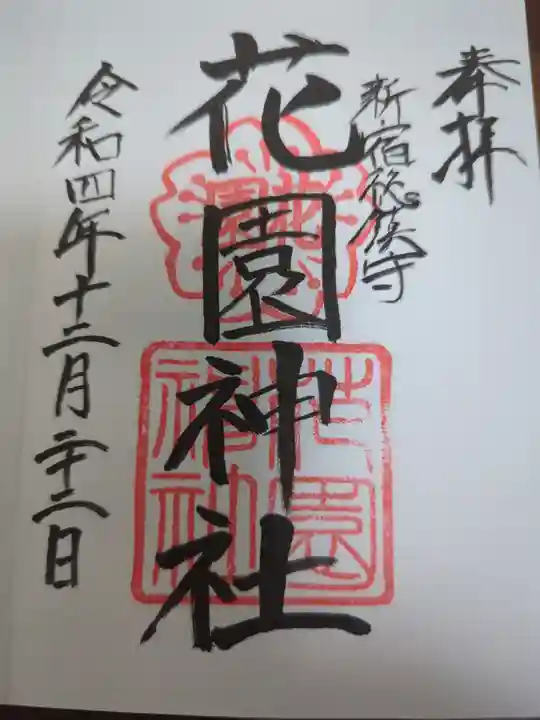 奉拝
新宿総鎮守
花園神社
令和四年十二月二十二日
花園神社